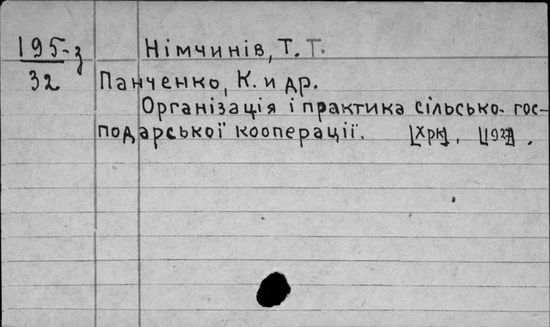 195-з Німчинів, Т. Т.
32 Панченко, К. и др.
Організація і практика сільсько-гос-
подарської кооперації. [Хрк], [1927].